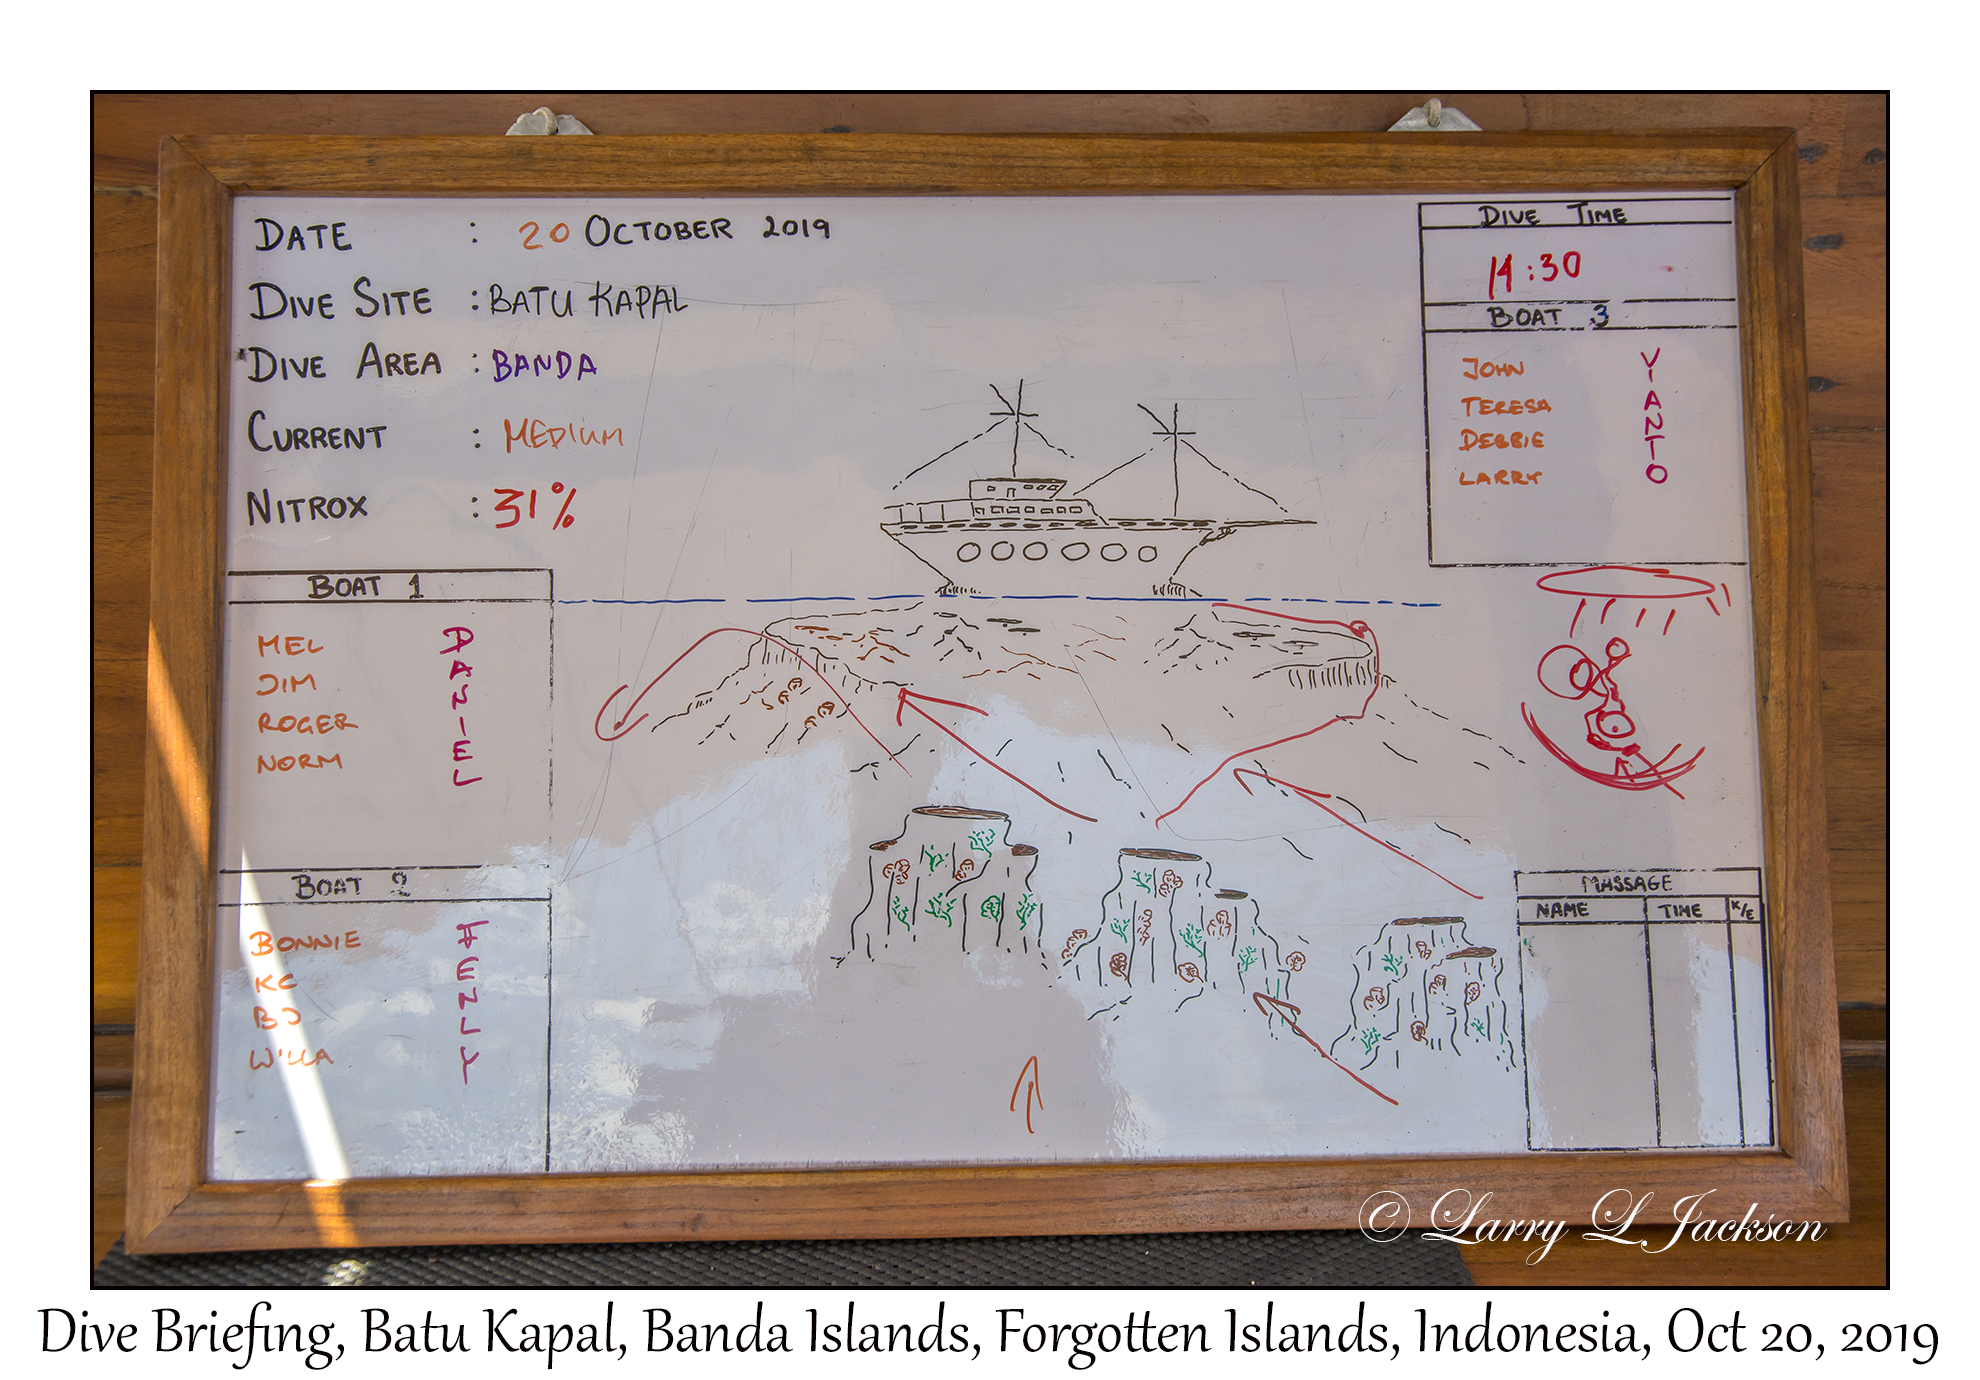 DATE : 20 OCTOBER 2019
DIVE SITE : BATU KAPAL
DIVE AREA : BANDA
CURRENT : MEDIUM
NITROX : 31%
DIVE TIME
:30
BOAT 3
JOHN
TERESA
DEBBIE
LARRY
VIANTO
BOAT 1
MEL
JIM
ROGER
NORM
DANIEL
BOAT 2
BONNIE
KC
BJ
WILLA
HENLY
MASSAGE
NAME TIME K/E
© Larry L Jackson
Dive Briefing, Batu Kapal, Banda Islands, Forgotten Islands, Indonesia, Oct 20, 2019